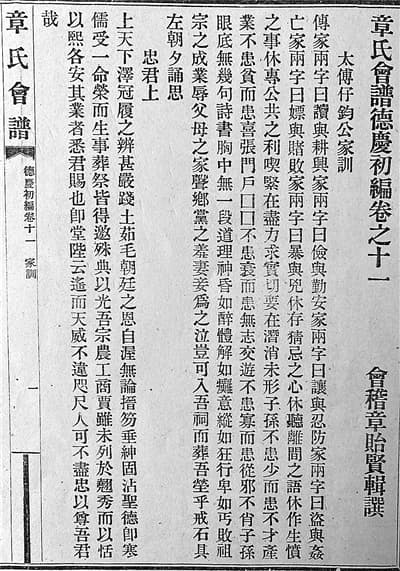 章氏會譜德慶初編卷之十一
會稽章貽賢輯譔
太傅仔鈞公家訓
傳家兩字曰讀與耕興家兩字曰儉與勤安家兩字曰讓與忍防家兩字曰盜與姦
亡家兩字曰嫖與賭敗家兩字曰暴與兇休存猜忌之心休聽離間之語休作生憤
之事休專公共之利喫緊在盡力求實切要在潛消未形子孫不患少而患不才產
業不患貧而患喜張門戶□□不患衰而患無志交遊不患寡而患從邪不肖子孫
眼底無幾句詩書胸中無一段道理神昏如醉體解如癱意縱如狂行卑如丐敗祖
宗之成業辱父母之家聲鄉黨之羞妻妾爲之泣豈可入吾祠而葬吾塋乎戒石具
左朝夕誦思
忠君上
上天下澤冠履之辨甚嚴踐土茹毛朝廷之恩自渥無論搢笏垂紳固沾聖德卽寒
儒受一命榮而生事葬祭皆得邀殊典以光吾宗農工商賈雖未列於翹秀而以恬
以熙各安其業者悉君賜也卽堂陛云遙而天威不違咫尺人可不盡忠以尊吾君
哉
章氏會譜
德慶初編卷十一
家訓
一